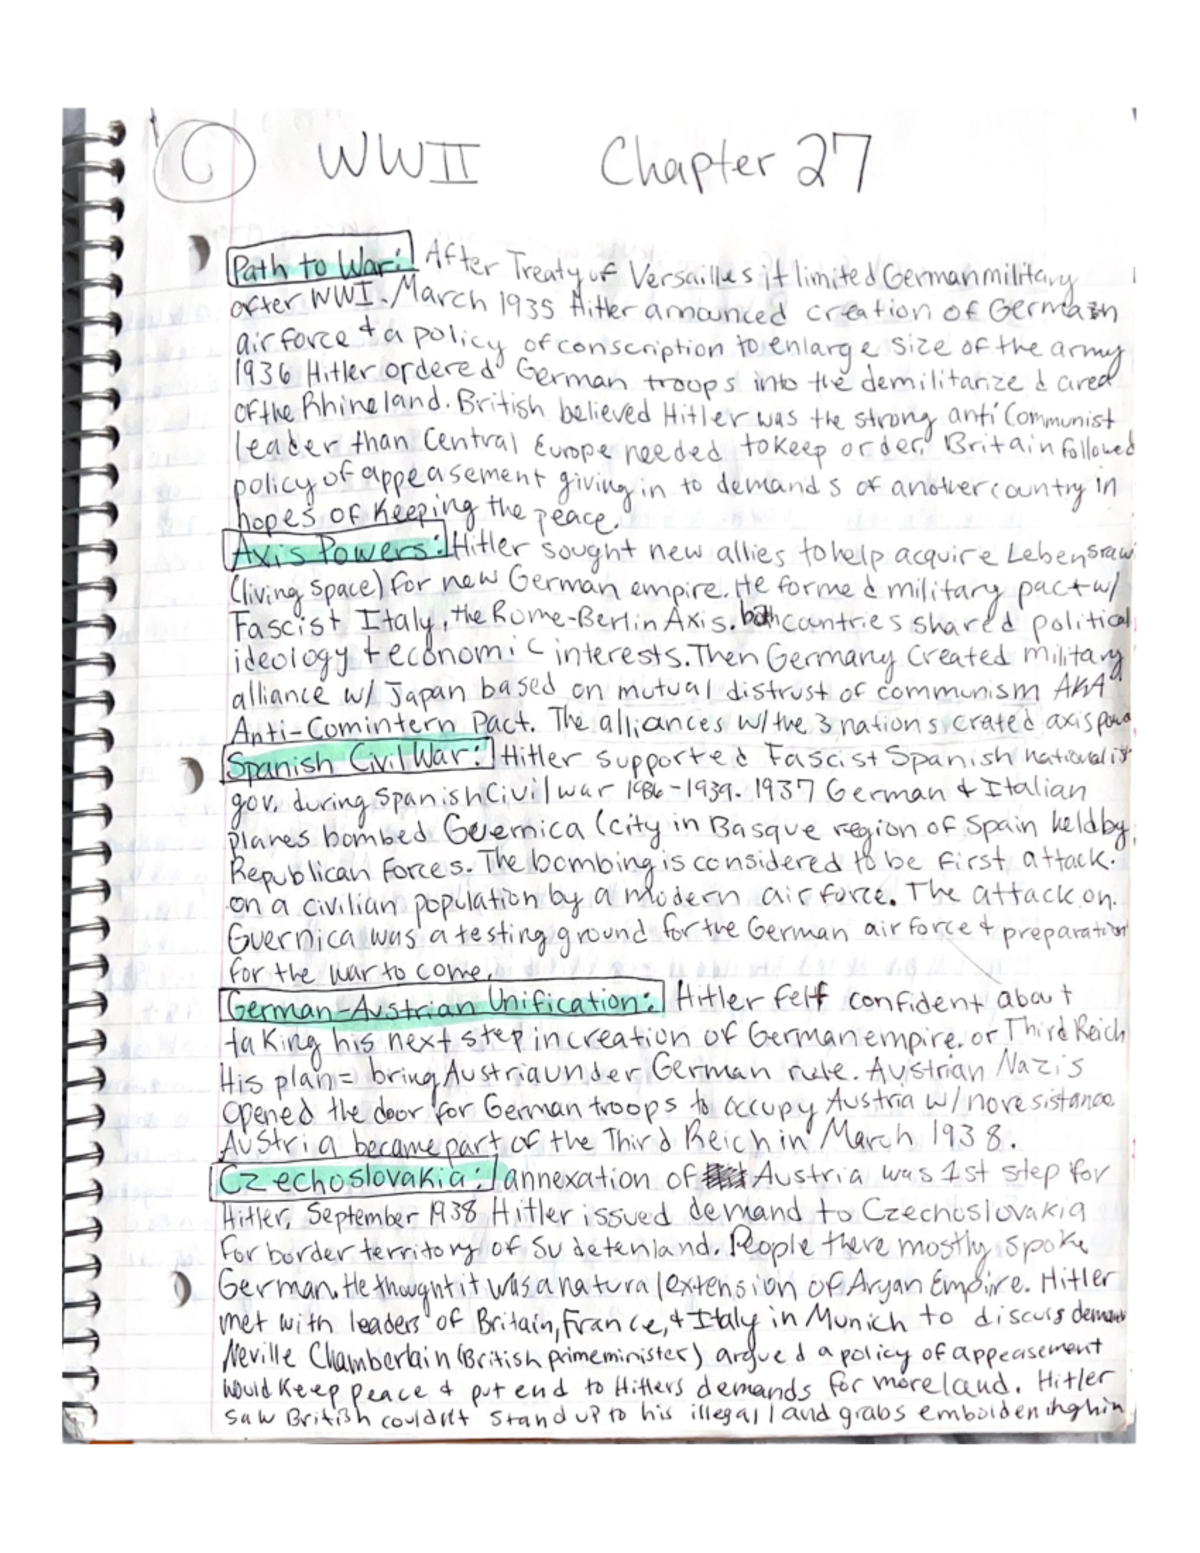 WWII Chapter 27
Path to War: After Treaty of Versailles it limited German military
after WWI. March 1935 Hitler announced creation of German
air force + a policy of conscription to enlarge size of the army
1936 Hitler ordered German troops into the demilitarized area
of the Rhineland. British believed Hitler was the strong anti Communist
leader than Central Europe needed to keep order. Britain followed
policy of appeasement giving in to demands of another country in
hopes of keeping the peace.
Axis Powers: Hitler sought new allies to help acquire Lebensraw
(living space) for new German empire. He formed military pact w/
Fascist Italy, the Rome-Berlin Axis. both countries shared political
ideology + economic interests. Then Germany created military
alliance w/ Japan based on mutual distrust of communism AKA
Anti-Comintern Pact. The alliances w/ the 3 nations crated axis powe
Spanish Civil War: Hitler supported Fascist Spanish nationalis
gov. during Spanish Civil war 1936-1939. 1937 German + Italian
planes bombed Guernica (city in Basque region of Spain held by
Republican Forces. The bombing is considered to be first attack.
on a civilian population by a modern air force. The attack on.
Guernica was a testing ground for the German air force + preparation
for the war to come.
German-Austrian Unification: Hitler felt confident about
taking his next step in creation of German empire. or Third Reich
His plan = bring Austria under German rule. Austrian Nazis
opened the door for German troops to occupy Austria w/ no resistance
Austria became part of the Third Reich in March 1938.
Czechoslovakia: annexation of Austria was 1st step for
Hitler, September 1938 Hitler issued demand to Czechoslovakia
for border territory of Sudetenland. People there mostly spoke
German. He thought it was a natural extension of Aryan Empire. Hitler
met with leaders of Britain, France, + Italy in Munich to discuss deman
Neville Chamberlain (British prime minister) argued a policy of appeasement
would keep peace + put end to Hitlers demands for more land. Hitler
saw British couldn't stand up to his illegal land grabs emboldening him